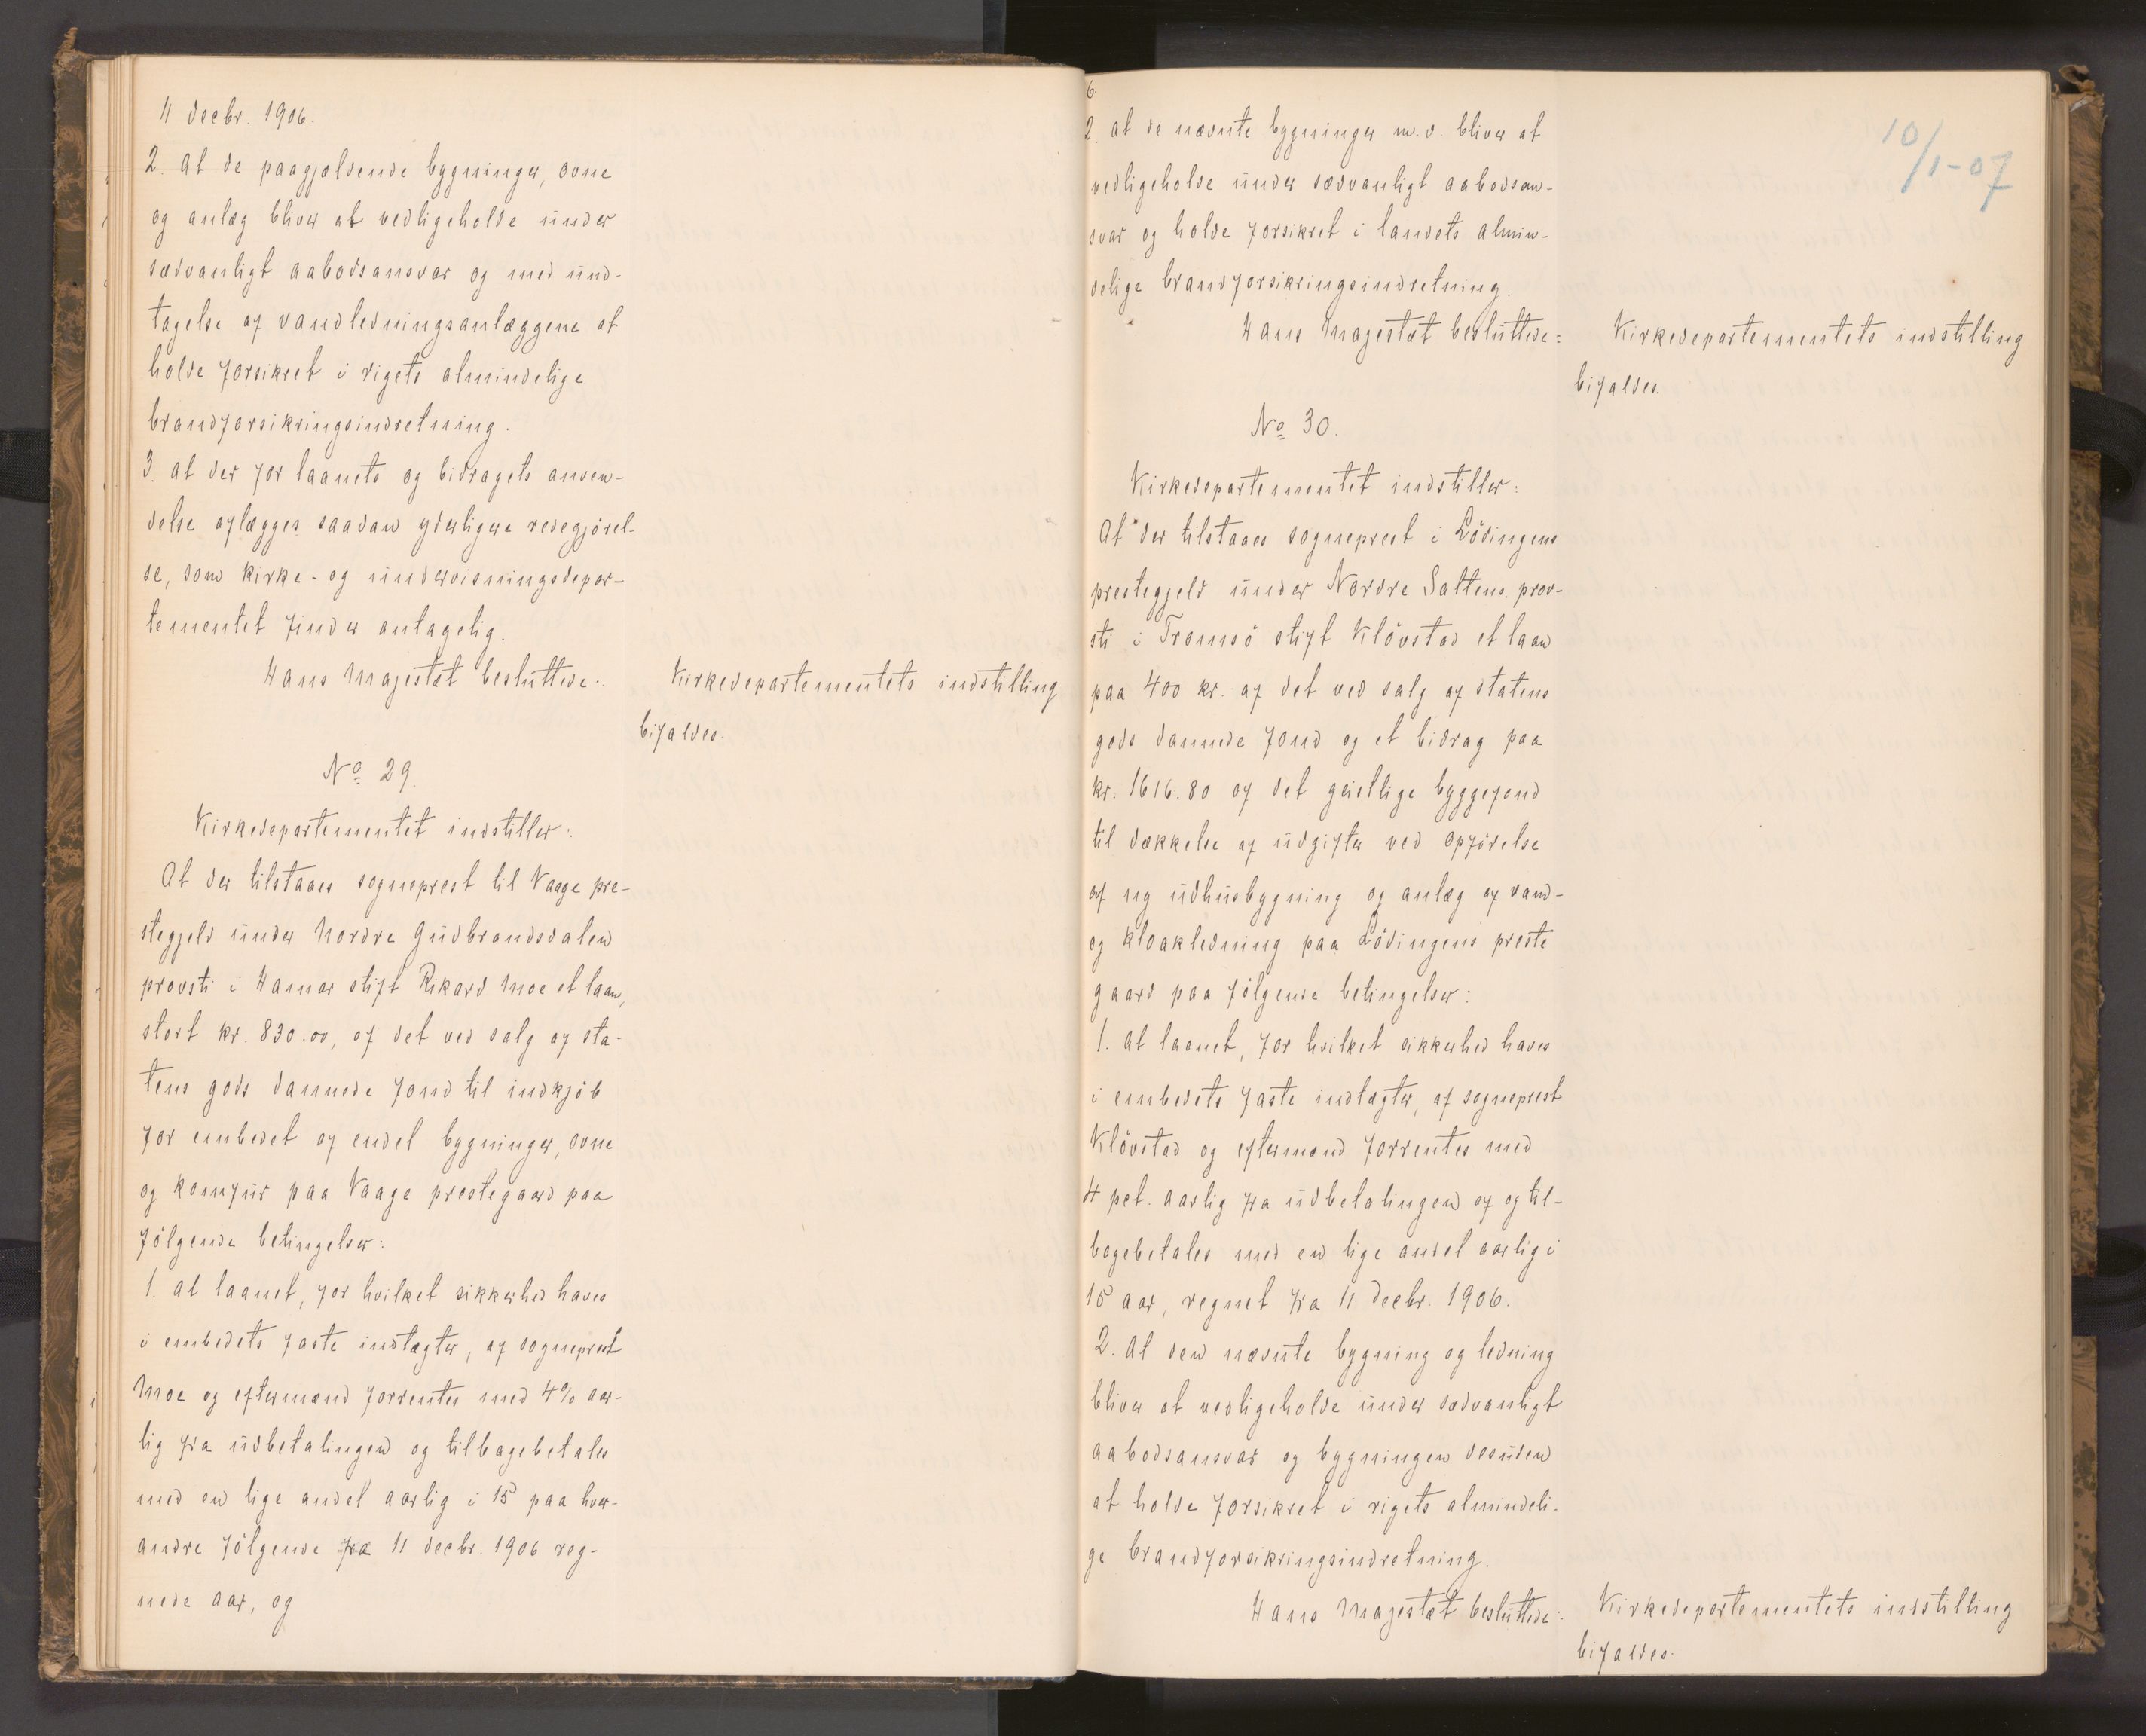 11 decbr. 1906.
2. at de paagjældende bygninger, ovne
og anlæg bliver at vedligeholde under
sædvanligt aabodsansvar og med und-
tagelse af vandledningsanlæggene at
holde forsikret i rigets almindelige
brandforsikringsindretning.
3. at der for laanets og bidragets anven-
delse aflægges saadan yderligere redegjörel-
se, som kirke- og undervisningsdepar-
tementet finder antagelig.
Hans Majestæt besluttede:
Kirkedepartementets indstilling
bifaldes.
No 29.
Kirkedepartementet indstiller:
At der tilstaaes sogneprest til Vaage pre-
stegjeld under Nordre Gudbrandsdalen
provsti i Hamar stift Rikard Moe et laan,
stort kr. 830.00, af det ved salg af sta-
tens gods dannede fond til indkjöb
for embedet af endel bygninger, ovne
og komfur paa Vaage prestegaard paa
fölgende betingelser:
1. at laanet, for hvilket sikkerhed haves
i embedets faste indtægter, af sogneprest
Moe og eftermænd forrentes med 4% aar-
lig fra udbetalingen og tilbagebetales
med en lige andel aarlig i 15 paa hver-
andre fölgende fra 11 decbr. 1906 reg-
nede aar, og
6.
2. at de nævnte bygninger m.v. bliver at
vedligeholde under sædvanligt aabodsan-
svar og holde forsikret i landets almin-
delige brandforsikringsindretning.
Hans Majestæt besluttede:
10/1-07
Kirkedepartementets indstilling
bifaldes.
No 30.
Kirkedepartementet indstiller:
At der tilstaaes sogneprest i Lödingens
prestegjeld under Nordre Saltens prov-
sti i Tromsö stift Klövstad et laan
paa 400 kr. af det ved salg af statens
gods dannede fond og et bidrag paa
kr. 1616.80 af det geistlige byggefond
til dækkelse af udgifter ved opförelse
af ny udhusbygning og anlæg af vand-
og kloakledning paa Lödingens preste
gaard paa fölgende betingelser:
1. At laanet, for hvilket sikkerhed haves
i embedets faste indtægter, af sogneprest
Klövstad og eftermænd forrentes med
4 pct. aarlig fra udbetalingen af og til-
bagebetales med en lige andel aarlig i
15 aar, regnet fra 11 decbr. 1906.
2. At den nævnte bygning og ledning
bliver at vedligeholde under sædvanligt
aabodsansvar og bygningen desuden
at holde forsikret i rigets almindeli-
ge brandforsikringsindretning.
Hans Majestæt besluttede:
Kirkedepartementets indstilling
bifaldes.